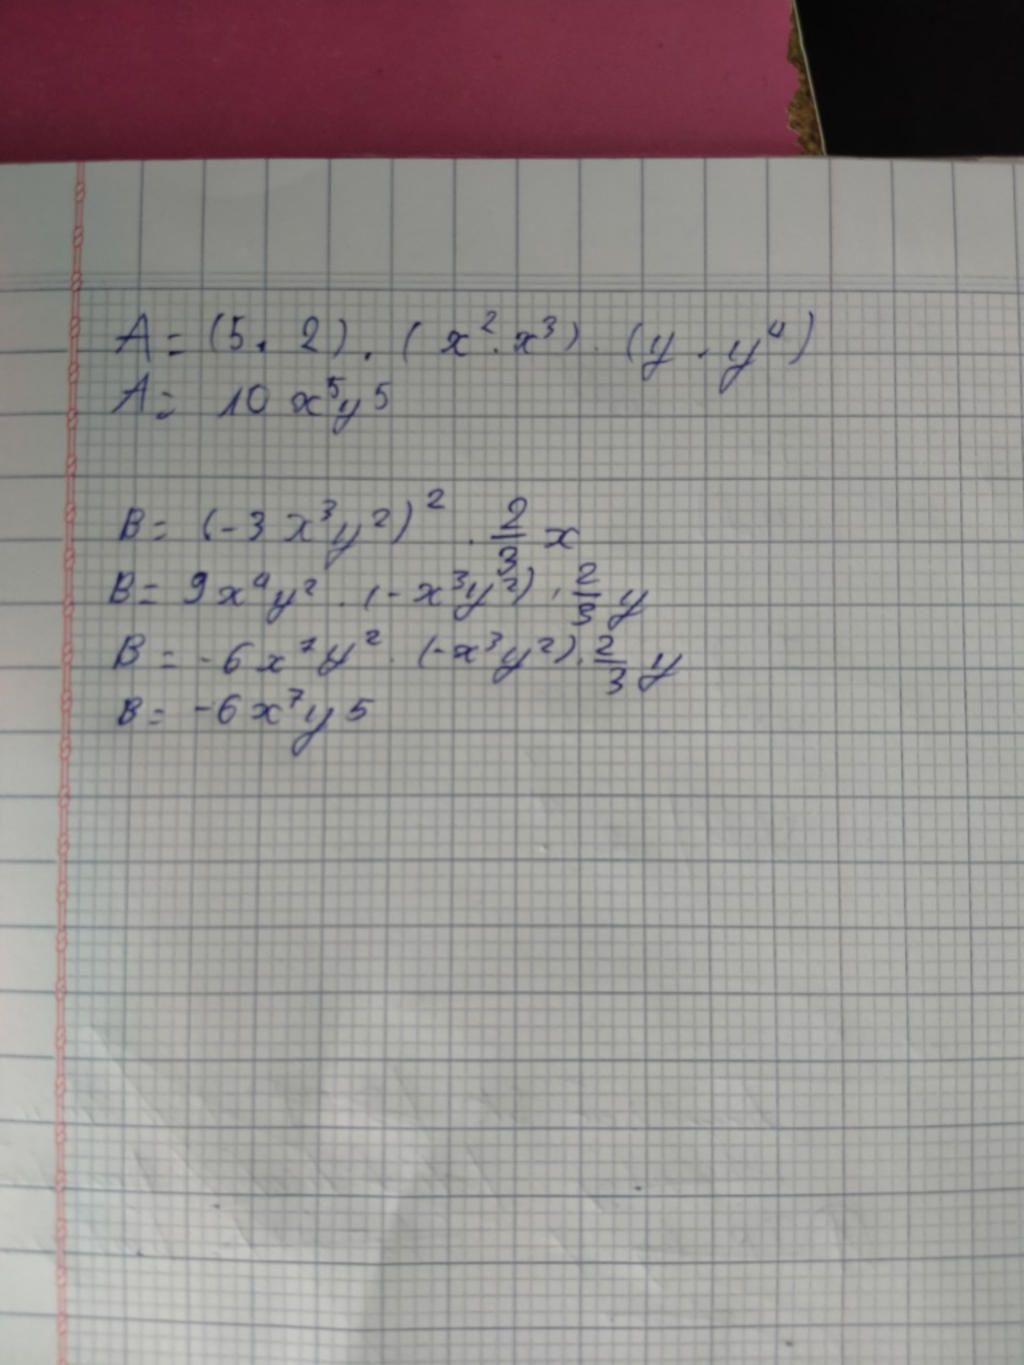 A = (5 . 2) . ( x² . x³) . (y . y⁴)
A = 10 x⁵y5
B = (-3 x³y²)² . 2/3 x
B = 9x⁴y² . (-x³y²) . 2/3 y
B = -6x⁷y² . (-x³y²) . 2/3 y
B = -6x⁷y5